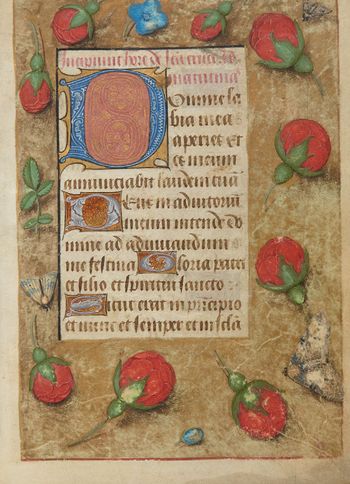 Incipiunt hore de sca cruce ad
matutinā
Domine la
bia mea
aperies Et
os meum
annunciabit laudem tuā
Deus in adiutoriū
meum intende Do
mine ad adiuuandum
me festina Gloria patri
et filio et spiritui sancto
Sicut erat in prīcipio
et nunc et semper et in